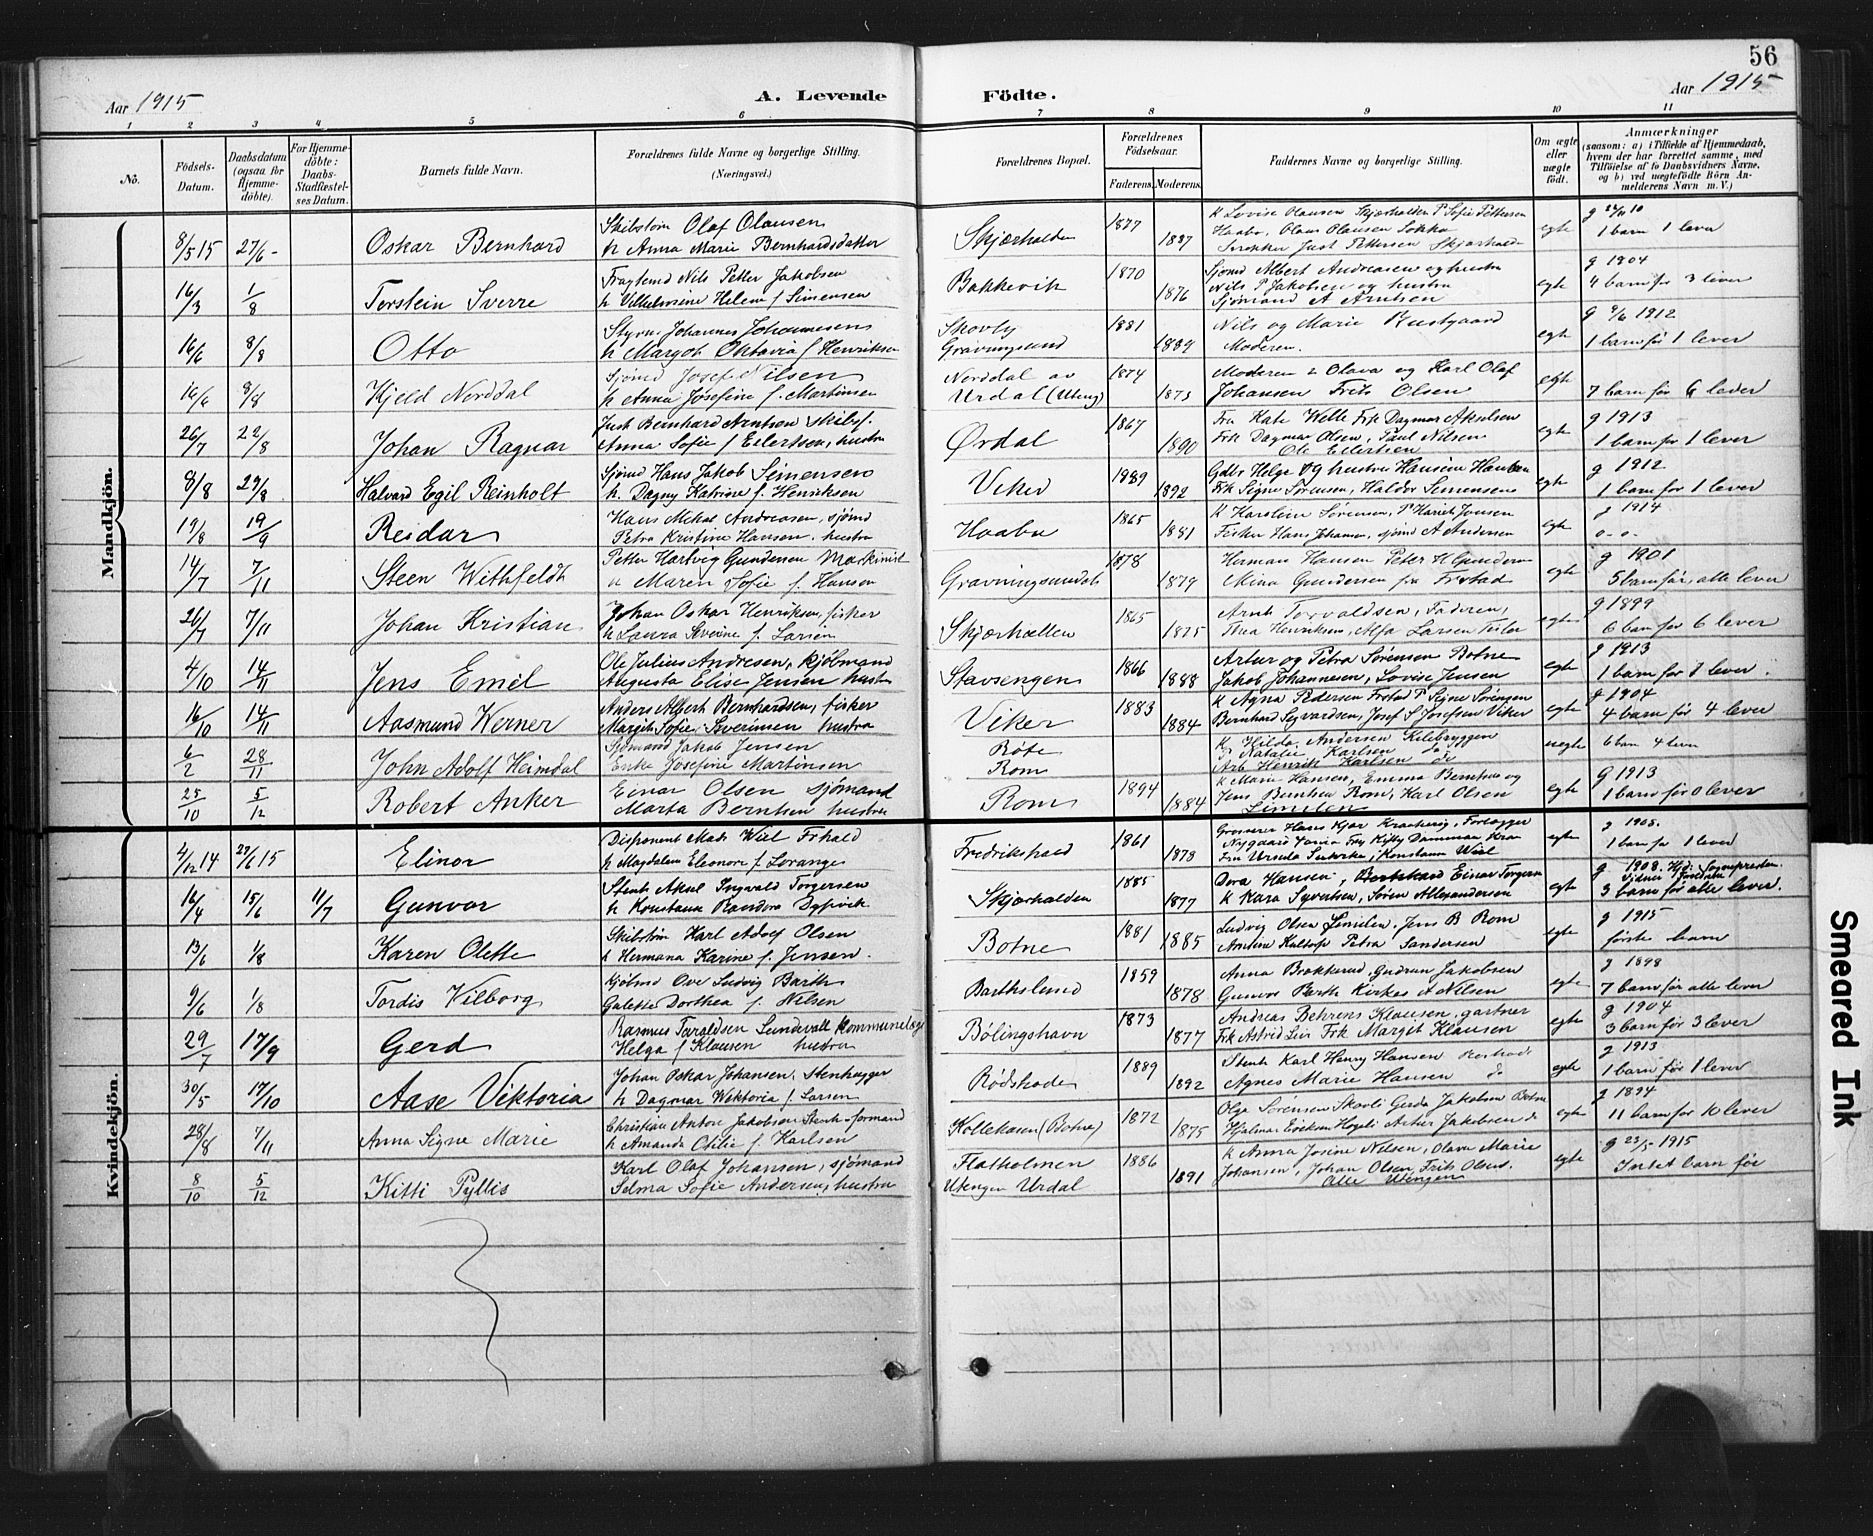 56
Aar 1915
A. Levende Födte.
Aar 1915
1 2 3 4 5 6 7 8 9 10 11
No.
Födsels-Datum.
Daabsdatum (ogsaa for Hjemme-döbte).
For Hjemme-döbte: Daabs-Stadfæstel-ses Datum.
Barnets fulde Navn.
Forældrenes fulde Navne og borgerlige Stilling. (Næringsvei.)
Forældrenes Bopæl.
Forældrenes Födselsaar.
Faderens. Moderens.
Faddernes Navne og borgerlige Stilling.
Om ægte eller uægte födt.
Anmærkninger (saasom: a) i Tilfælde af Hjemmedaab, hvem der har forrettet samme, med Tilföielse af to Daabsvidners Navne, og b) ved uægtefödte Börn An-melderens Navn m. V.)
Mandkjön.
8/5 15 27/6 - Oskar Bernhard Skibstøm Olaf Olausen h Anna Marie Bernhardsdatter Skjærhalden 1877 1887 K Lovise Olausen Skjærhalden P Sofie Pettersen Haabo, Olaus Olausen Lokka Snekker Just Pettersen Skjærhalde egte 1 barn 1 lever
16/3 1/8 Torstein Sverre Nils Petter Jakobsen h Vilhelmine Helene f Simensen Bakkevik 1870 1876 Sjømd Albert Andreasen og hustru Nils P Jakobsen og hustru Sjømand A Arntsen egte g 1904 4 barn før 3 lever
16/6 8/8 Otto Styrm Johannes Johannesen h Margot Oktavia f Henriksen Skovly Gravningsund 1881 1889 Nils og Marie Kustgaard Moderen. egte g 9/6 1912 1 barn før 1 lever
16/6 8/8 Kjeld Norddal Sjømd Josef Nilsen h Anna Josefine f. Martinsen Norddal av Urdal (Uteng) 1874 1873 Moderen & Olava og Karl Olaf Johansen Frits Olsen egte 7 barn før 6 lever
26/7 22/8 Johan Ragnar Just Bernhard Arntsen skibsf. Anna Sofie f Eilertsen, hustru Ørdal 1867 1890 Fru Kate Welle Frk Dagmar Akselsen Frk Dagmar Olsen, Paul Nilsen Ole Eilertsen egte g 1913 1 barn før 1 lever
8/8 29/8 Halvard Egil Reinholt Sjømd Hans Jakob Simensen h. Dagny Katrine f. Henriksen Viker 1889 1892 Gdbr Helge og hustru Hansine Hansen Frk Signe Sørensen, Haldor Simensen egte g 1912 1 barn før 1 lever
19/8 19/9 Reidar Hans Mikal Andreasen, sjømd Petra Kristine Hansen, hustru Haabu 1865 1881 K Karoline Sørensen, P Harriet Jensen Fisker Hans Johansen, sjømd A Andersen egte g 1914 0-0-
14/7 7/11 Steen Withfeldt Petter Hartvig Gundersen Maskinist h Maren Sofie f. Hansen Gravningsundet 1878 1879 Herman Hansen Peter H Gundersen Mina Gundersen fra Frstad egte g 1901 5 barn før, alle lever
26/7 7/11 Johan Kristian Johan Oskar Henriksen, fisker h Laura Severine f. Larsen Skjærhallen 1865 1875 Arnt Torvaldsen, Faderen, Thea Henriksen, Alfa Larsen egte g 1899 6 barn før 6 lever
4/10 14/11 Jens Emil Ole Julius Andresen, kjøbmand Augusta Elise Jensen hustru Stavsengen 1866 1888 Artur og Petra Sørensen Botne Jakob Johannesen, Lovise Jensen egte g 1913 1 barn før 1 lever.
16/10 14/11 Aasmund Werner Anders Albert Bernhardsen, fisker Margit Sofie Severinsen hustru Viker 1883 1884 K Agna Pedersen Frstad P Signe Sørensen Bernhard Syvardsen, Josef S Josefsen Viker egte g 1904 4 barn før 4 lever
6/2 28/11 John Adolf Heimdal Sjømand Jakob Jensen Enke Josefine Martinsen Røte Rom K Hilda Andersen Kilebryggen K Natalie Karlsen do Arb Henrik Karlsen do uegte 6 barn 4 lever
25/10 5/12 Robert Anker Einar Olsen sjømand Marta Berntsen hustru Rom 1894 1884 K Marie Hansen, Emma Berntsen og Jens Berntsen Rom, Karl Olsen Similen egte g 1913 1 barn før 0 lever
Kvindekjön.
4/12 14 27/6 15 Elinor Disponent Mads Wiel Frhald h Magdalena Eleonore f. Lorange Fredrikshald 1861 1873 Grosserer Hans Kjær Kragerø, Forlægger Nygaard Fru Ursula Konstanse Wiel egte g 1905. 1 barn før 1 lever
16/4 15/6 11/7 Gunvor Stenh Aksel Ingvald Torgersen h Konstanse Randora Dypvik Skjærhalden 1885 1877 Dora Hansen, Einar Torgersen K Kara Syvertsen, Søren Allexandersen egte g 1908. Hjd. Sognepresten. 3 barn før alle lever.
13/6 1/8 Karen Olette Skibstøm Karl Adolf Olsen h Hermana Karine f. Jensen. Botne 1881 1885 Ludvig Olsen Similen, Jens B Rom Antine Kultorp Petra Sandersen egte g 1915 første barn
9/6 1/8 Tordis Vilborg Kjøbmd Ove Ludvig Barth Galette Dorthea f. Nilsen Barthslund 1859 1878 Anna Brækkerud, Gudrun Jakobsen Gunvor Barth Kirkeø A Nilsen egte g 1898 7 barn før alle lever
29/7 17/9 Gerd Rasmus Taraldsen Lundevall Kommunelæge Helga f Klausen hustru Bølingshavn 1873 1877 Andreas Behrens Klausen, gartner Frk Astrid Lier Frk Margit Klausen egte g 1904 3 barn før 3 lever
30/5 17/10 Aase Viktoria Johan Oskar Johansen. Stenhugger h Dagmar Wiktoria f. Larsen Rødshode 1889 1892 Stenh Karl Henry Hansen Agnes Marie Hansen do egte g 1913 1 barn før 1 lever
28/8 7/11 Anna Signe Marie Christian Anton Jakobsen Stenh.formand h Amanda Otilie f Karlsen Kollekasen (Botne) 1872 1875 Olga Sørensen Skovli Gerda Jakobsen Botne Hjalmar Eriksen Høgeli Artur Jakobsen do egte g 1894 11 barn før 10 lever
8/10 5/12 Kitti Pyllis Karl Olaf Johansen, sjømand Selma Sofie Andersen, hustru Flatholmen Utengen Urdal 1886 1891 K Anna Josine Nilsen, Olava Marie Johansen, Johan Olsen, Frits Olsen. Alle Utengen egte g 23/5 1915 Intet barn før
Smeared Ink